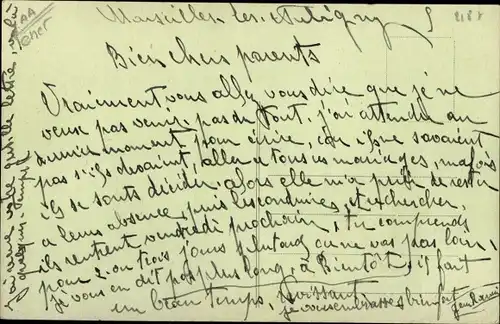 Marseilles-les-Aubigny
2188
Cher
Bien chers parents
Vraiment vous allez vous dire que je ne
veux pas venir pas du tout. j'ai attendu au
dernier moment pour écrire, car ils ne savaient
pas s'ils devaient aller a tous ces mariages, mais
ils se sont décider, alors elle m'a prier de rester
a leur absence, puis les conduires, et rechercher,
ils rentrent vendredi prochain, tu comprends
pour 2 ou trois jours plutard on ne vas pas loin,
je vous en dit pas plus long, à Bientôt, il fait
un beau temps, puissant
je vous embrasse bien fort